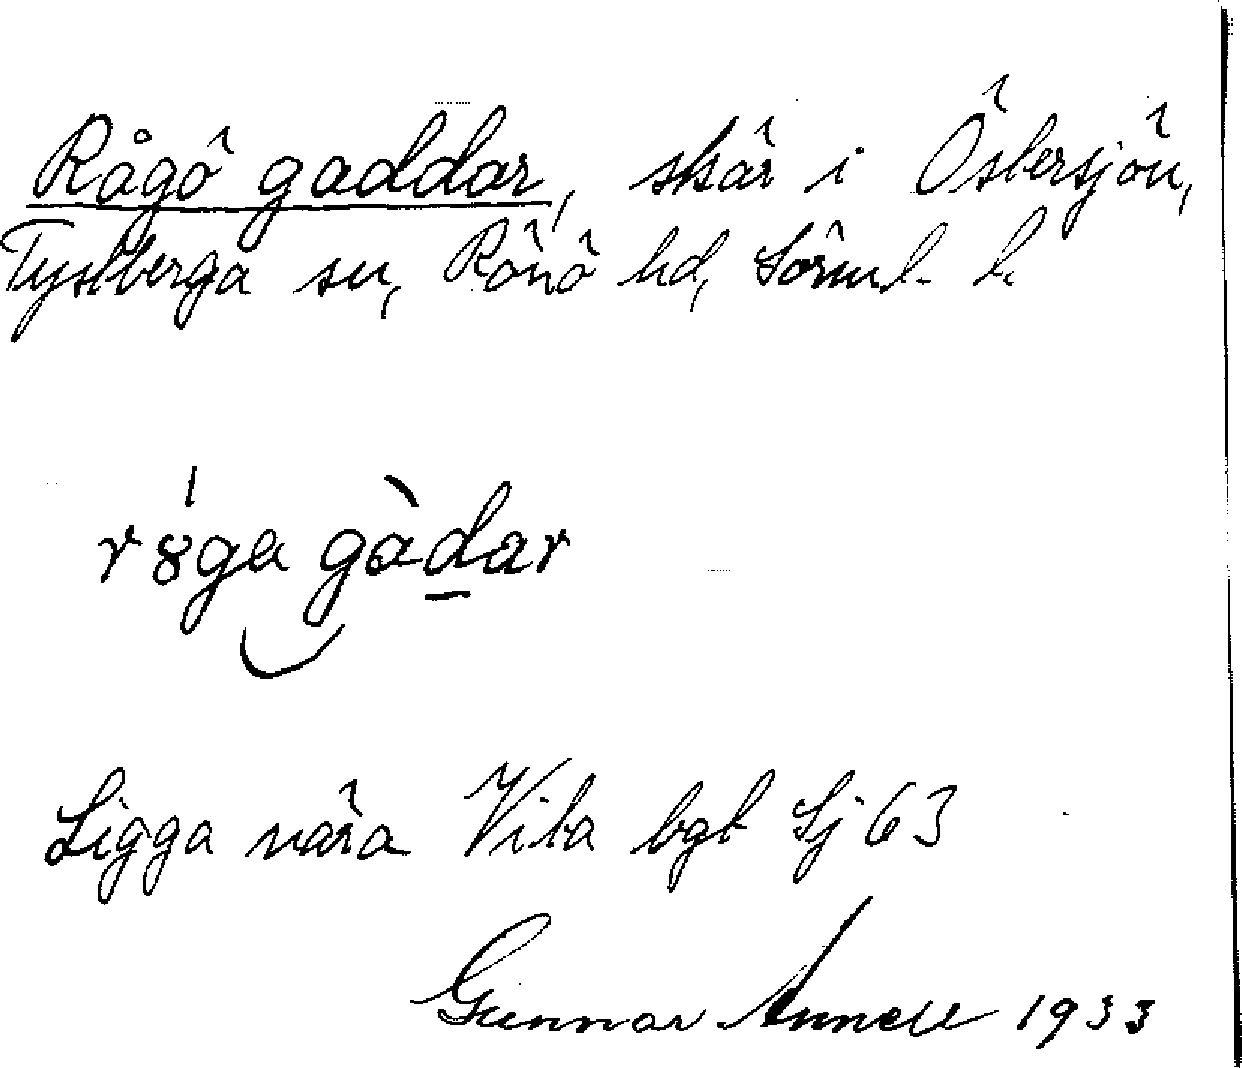 Rågö gaddar, skär i Östersjön,
Tystberga sn, Rönö hd, Sörml. l.
róga gàdar
Ligga nära Vita bgt Lj 63
Gunnar Annell 1933